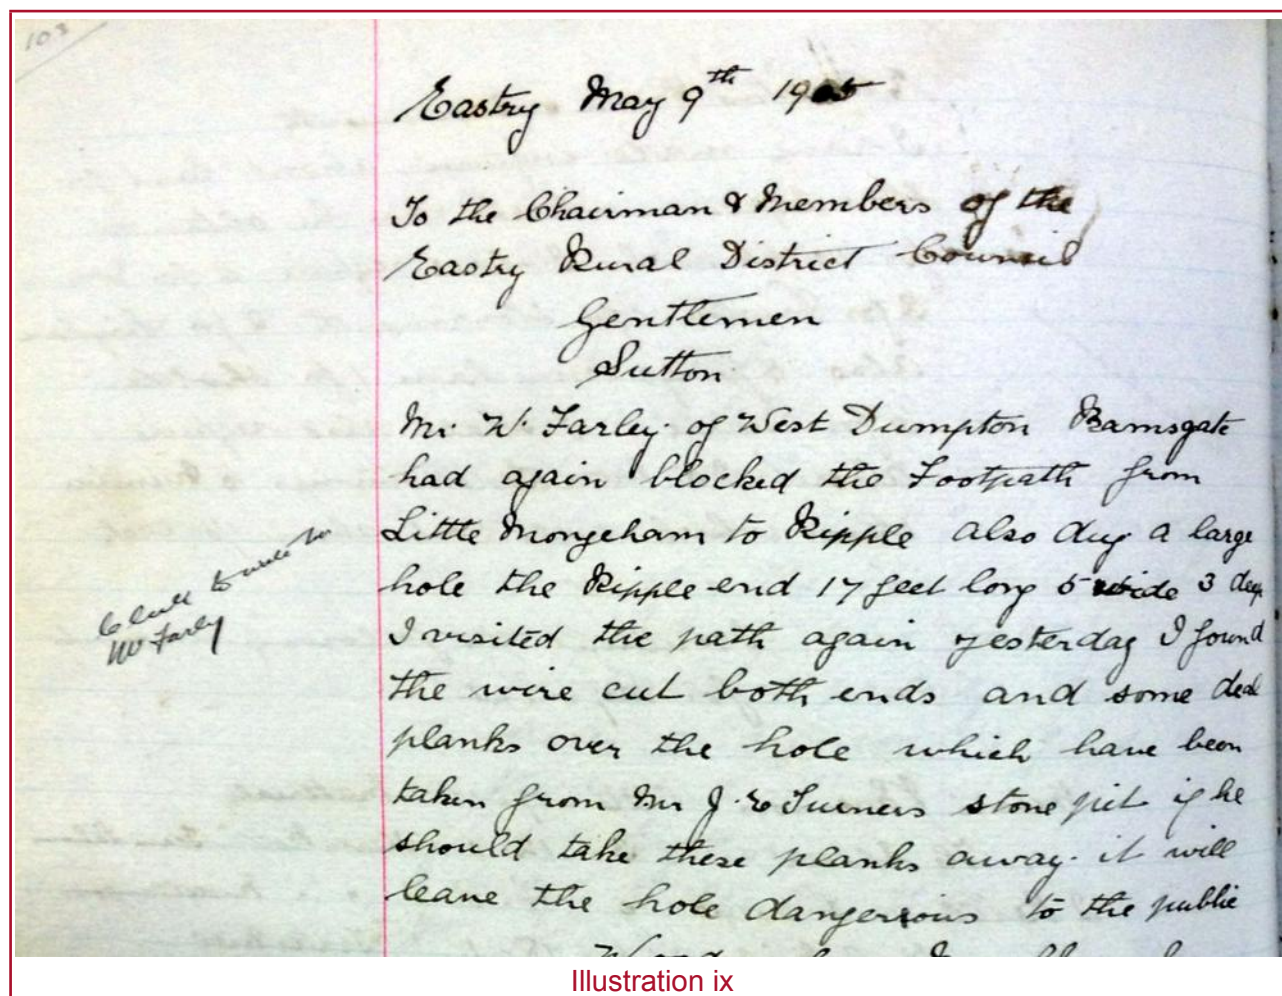 103
Eastry May 9th 1905
To the Chairman & Members of the
Eastry Rural District Council
Gentlemen
Sutton
Mr. W. Farley. of West Dumpton Ramsgate
had again blocked the Footpath from
Little Mongeham to Ripple also dug a large
hole the Ripple end 17 feet long 5 wide 3 deep
I visited the path again yesterday I found
the wire cut both ends and some deal
planks over the hole which have been
taken from Mr J. E Turners stone pit if he
should take these planks away. it will
leave the hole dangerous to the public
Clerk to write to
Mr Farley
Illustration ix